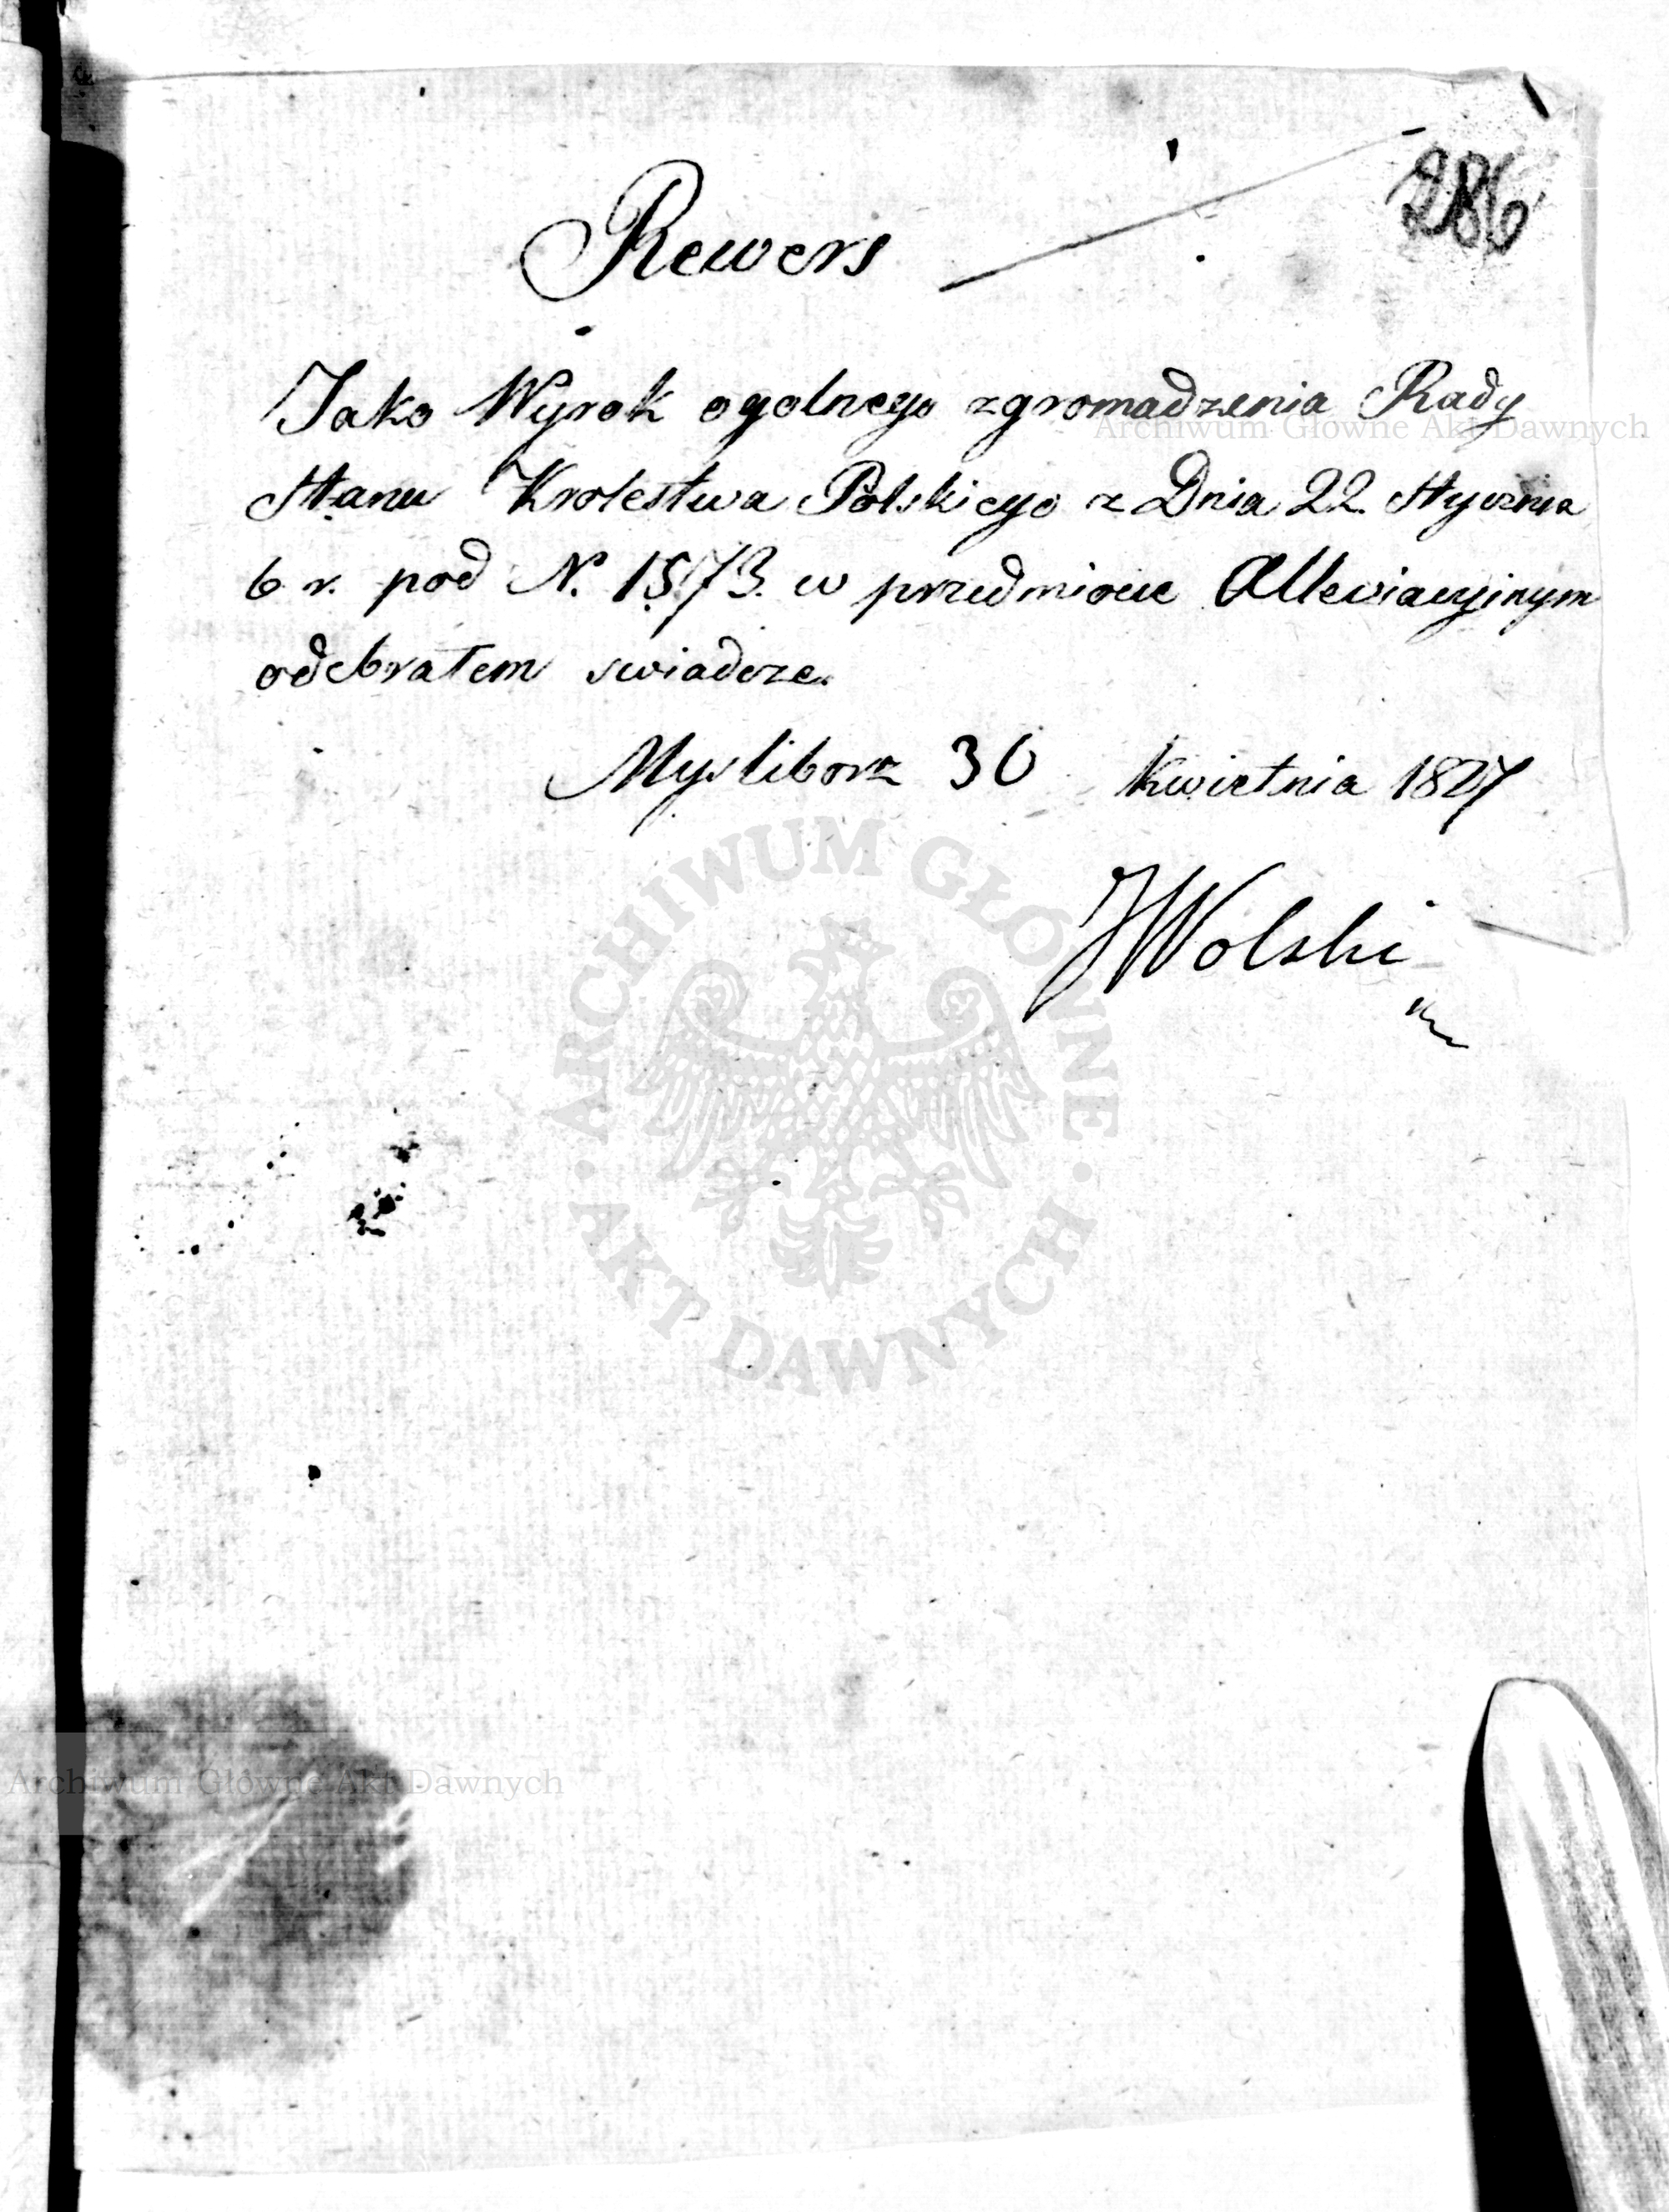 286
Rewers
Jako Wyrok ogolnego zgromadzenia Rady
Stanu Krolestwa Polskiego z Dnia 22 Stycznia
b r. pod N. 1573. w przedmiocie Alleviacyjnym
odebrałem swiadcze.
Mysliborz 30 Kwietnia 1827
JWolski
Archiwum Główne Akt Dawnych
ARCHIWUM GŁÓWNE · AKT DAWNYCH ·
Archiwum Główne Akt Dawnych